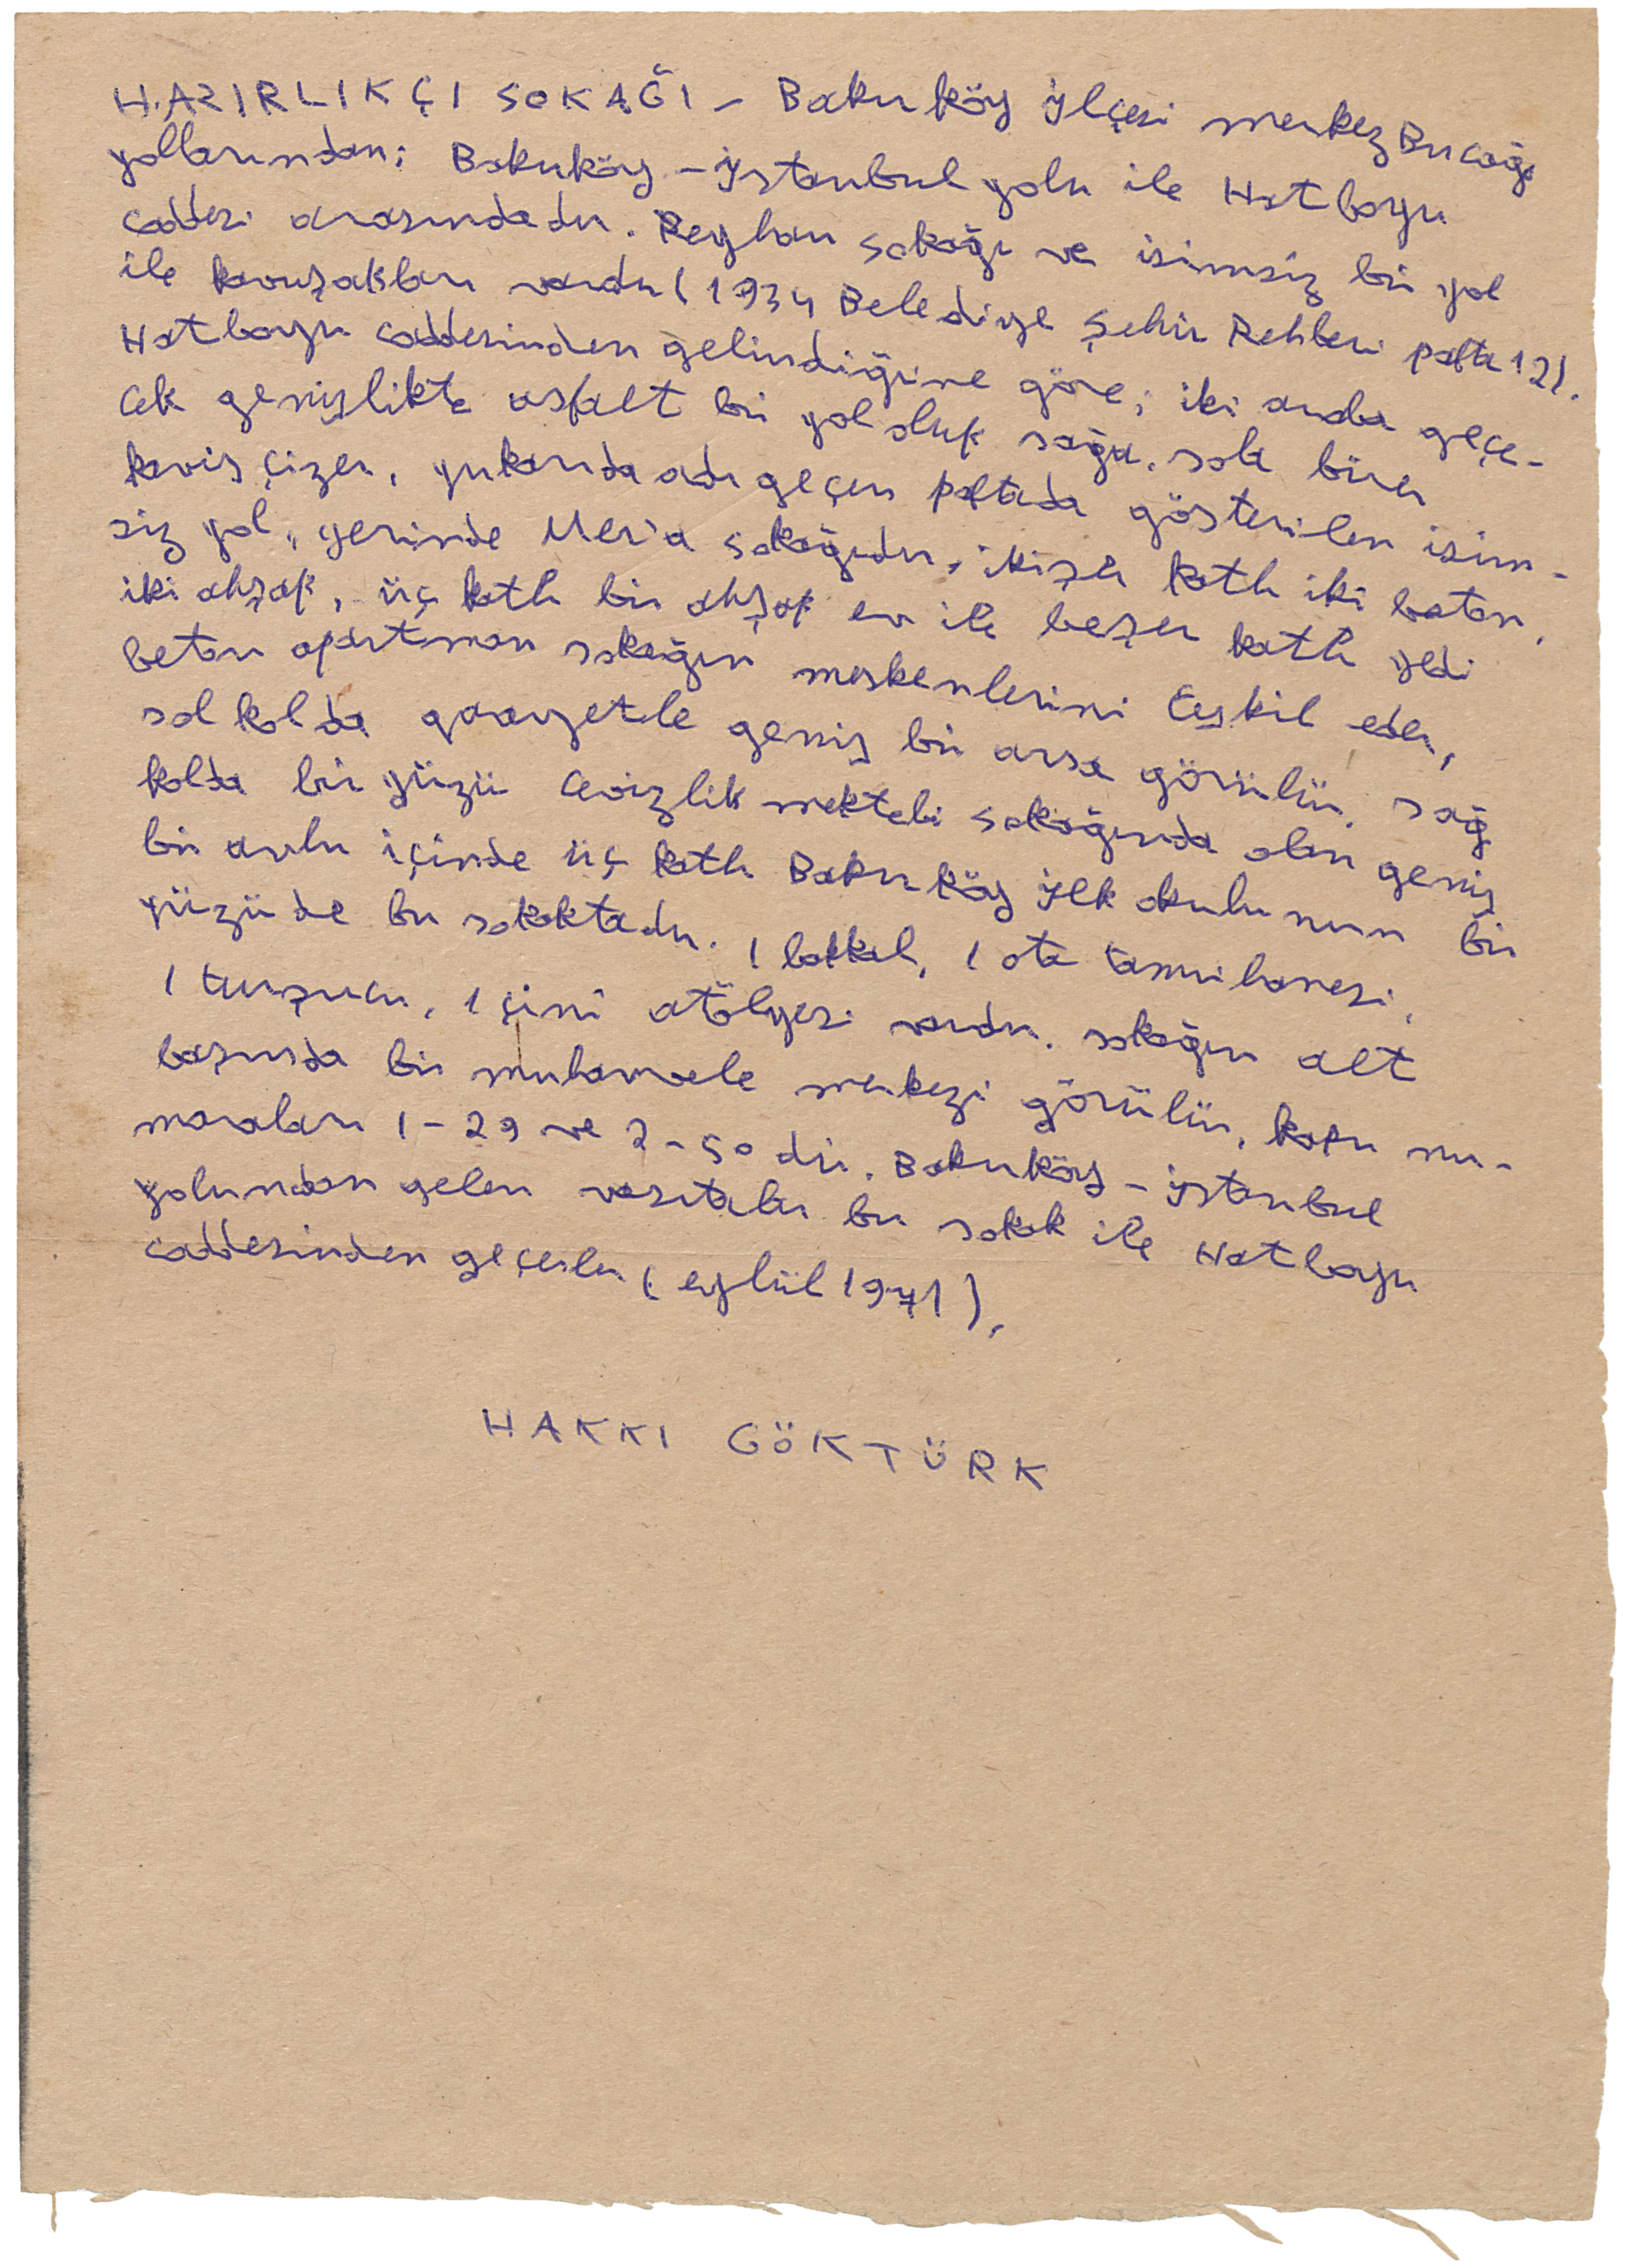 HAZIRLIKÇI SOKAĞI – Bakırköy İlçesi merkez Bucağı
yollarından; Bakırköy – İstanbul yolu ile Hatboyu
caddesi arasındadır. Reyhan sokağı ve isimsiz bir yol
ile kavuşakları vardır (1934 Belediye Şehir Rehberi pafta 12).
Hatboyu caddesinden gelindiğine göre; iki araba geçe-
cek genişlikte asfalt bir yol olup sağa, sola birer
kavis çizer, yukarıda adı geçen paftada gösterilen isim-
siz yol, yerinde Mer'a sokağıdır, ikişer katlı iki beton,
iki ahşap, üç katlı bir ahşap ev ile beşer katlı yedi
beton apartman sokağın meskenlerini teşkil eder,
sol kolda gaayetle geniş bir arsa görülür, sağ
kolda bir yüzü Cevizlik mektebi sokağında olan geniş
bir avlu içinde üç katlı Bakırköy İlk okulunun bir
yüzü de bu sokaktadır. 1 bakkal, 1 oto tamirhanesi,
1 turşucu, 1 çini atölyesi vardır. sokağın alt
başında bir muhavvele merkezi görülür, kapu nu-
maraları 1 – 29 ve 2 – 50 dir. Bakırköy – İstanbul
yolundan gelen vasıtalar bu sokak ile Hatboyu
caddesinden geçerler (eylül 1971).
HAKKI GÖKTÜRK